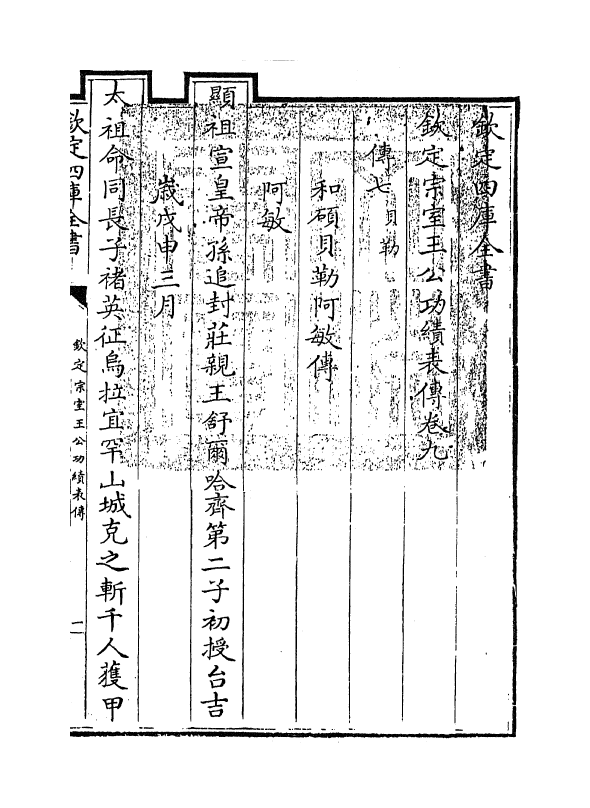 欽定四庫全書
欽定宗室王公功績表傳卷九
傳七 貝勒
和碩貝勒阿敏傳
阿敏
顯祖宣皇帝孫追封莊親王舒爾哈齊第二子初授台吉
歲戊申三月
太祖命同長子褚英征烏拉宜罕山城克之斬千人獲甲
欽定四庫全書
欽定宗室王公功績表傳